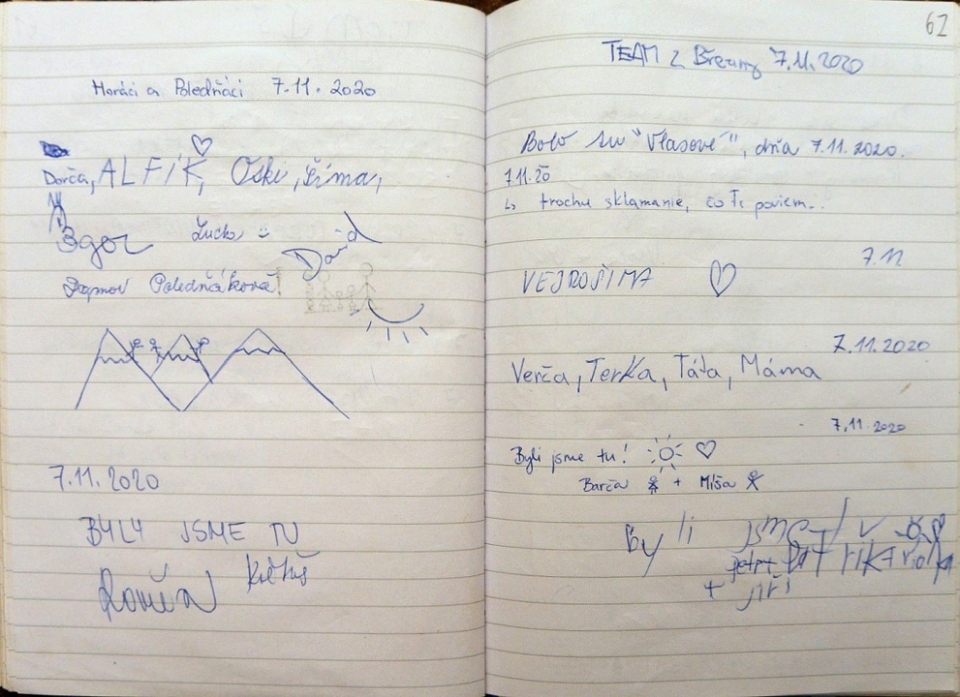 Horáci a Poledňáci 7.11.2020
Dorča, ALFÍK, Oski, Šíma,
Igor Lucka David
Dagmar Poledňáková!
7.11.2020
BYLY JSME TU
62
TEAM z Březiny 7.11.2020
Bolo su "Vlasové", dňa 7.11.2020.
7.11.20
↳ trochu sklamanie, čo Ti poviem..
7.11
VEJROSTIMA
7.11.2020
Verča, Terka, Táťa, Máma
7.11.2020
Byli jsme tu!
Barča + Míša
By li jsme T/ v
+ jiří